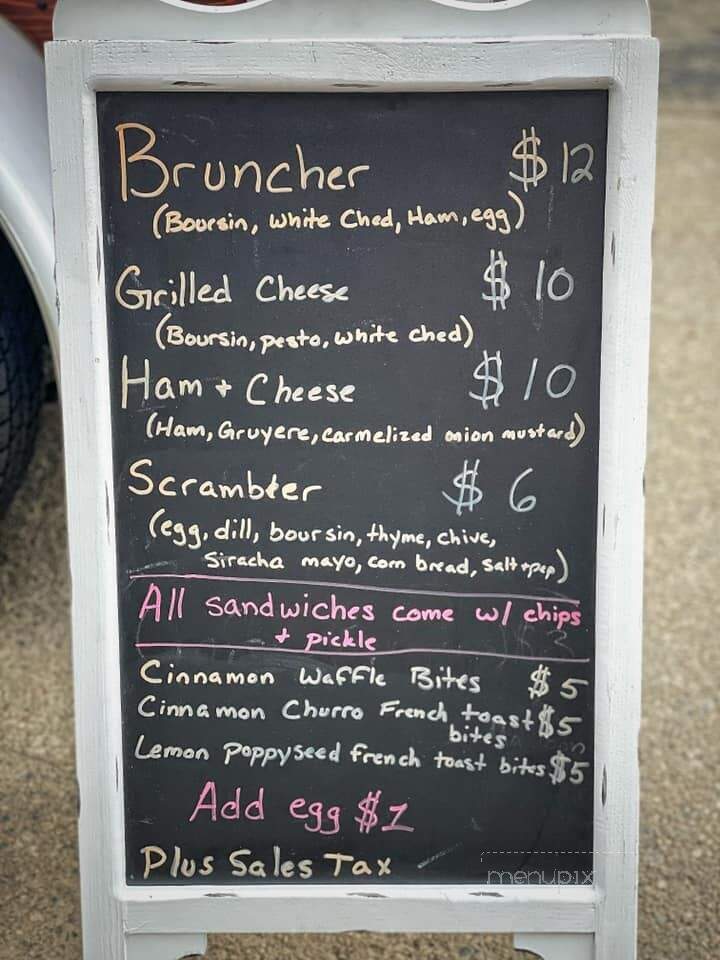 Bruncher $12
(Boursin, white Ched, Ham, egg)
Grilled Cheese $10
(Boursin, pesto, white ched)
Ham + Cheese $10
(Ham, Gruyere, carmelized onion mustard)
Scrambler $6
(egg, dill, boursin, thyme, chive,
Siracha mayo, corn bread, salt + pep)
All sandwiches come w/ chips
+ pickle
Cinnamon Waffle Bites $5
Cinnamon Churro French toast $5
bites
Lemon poppyseed french toast bites $5
Add egg $1
Plus Sales Tax
menupix